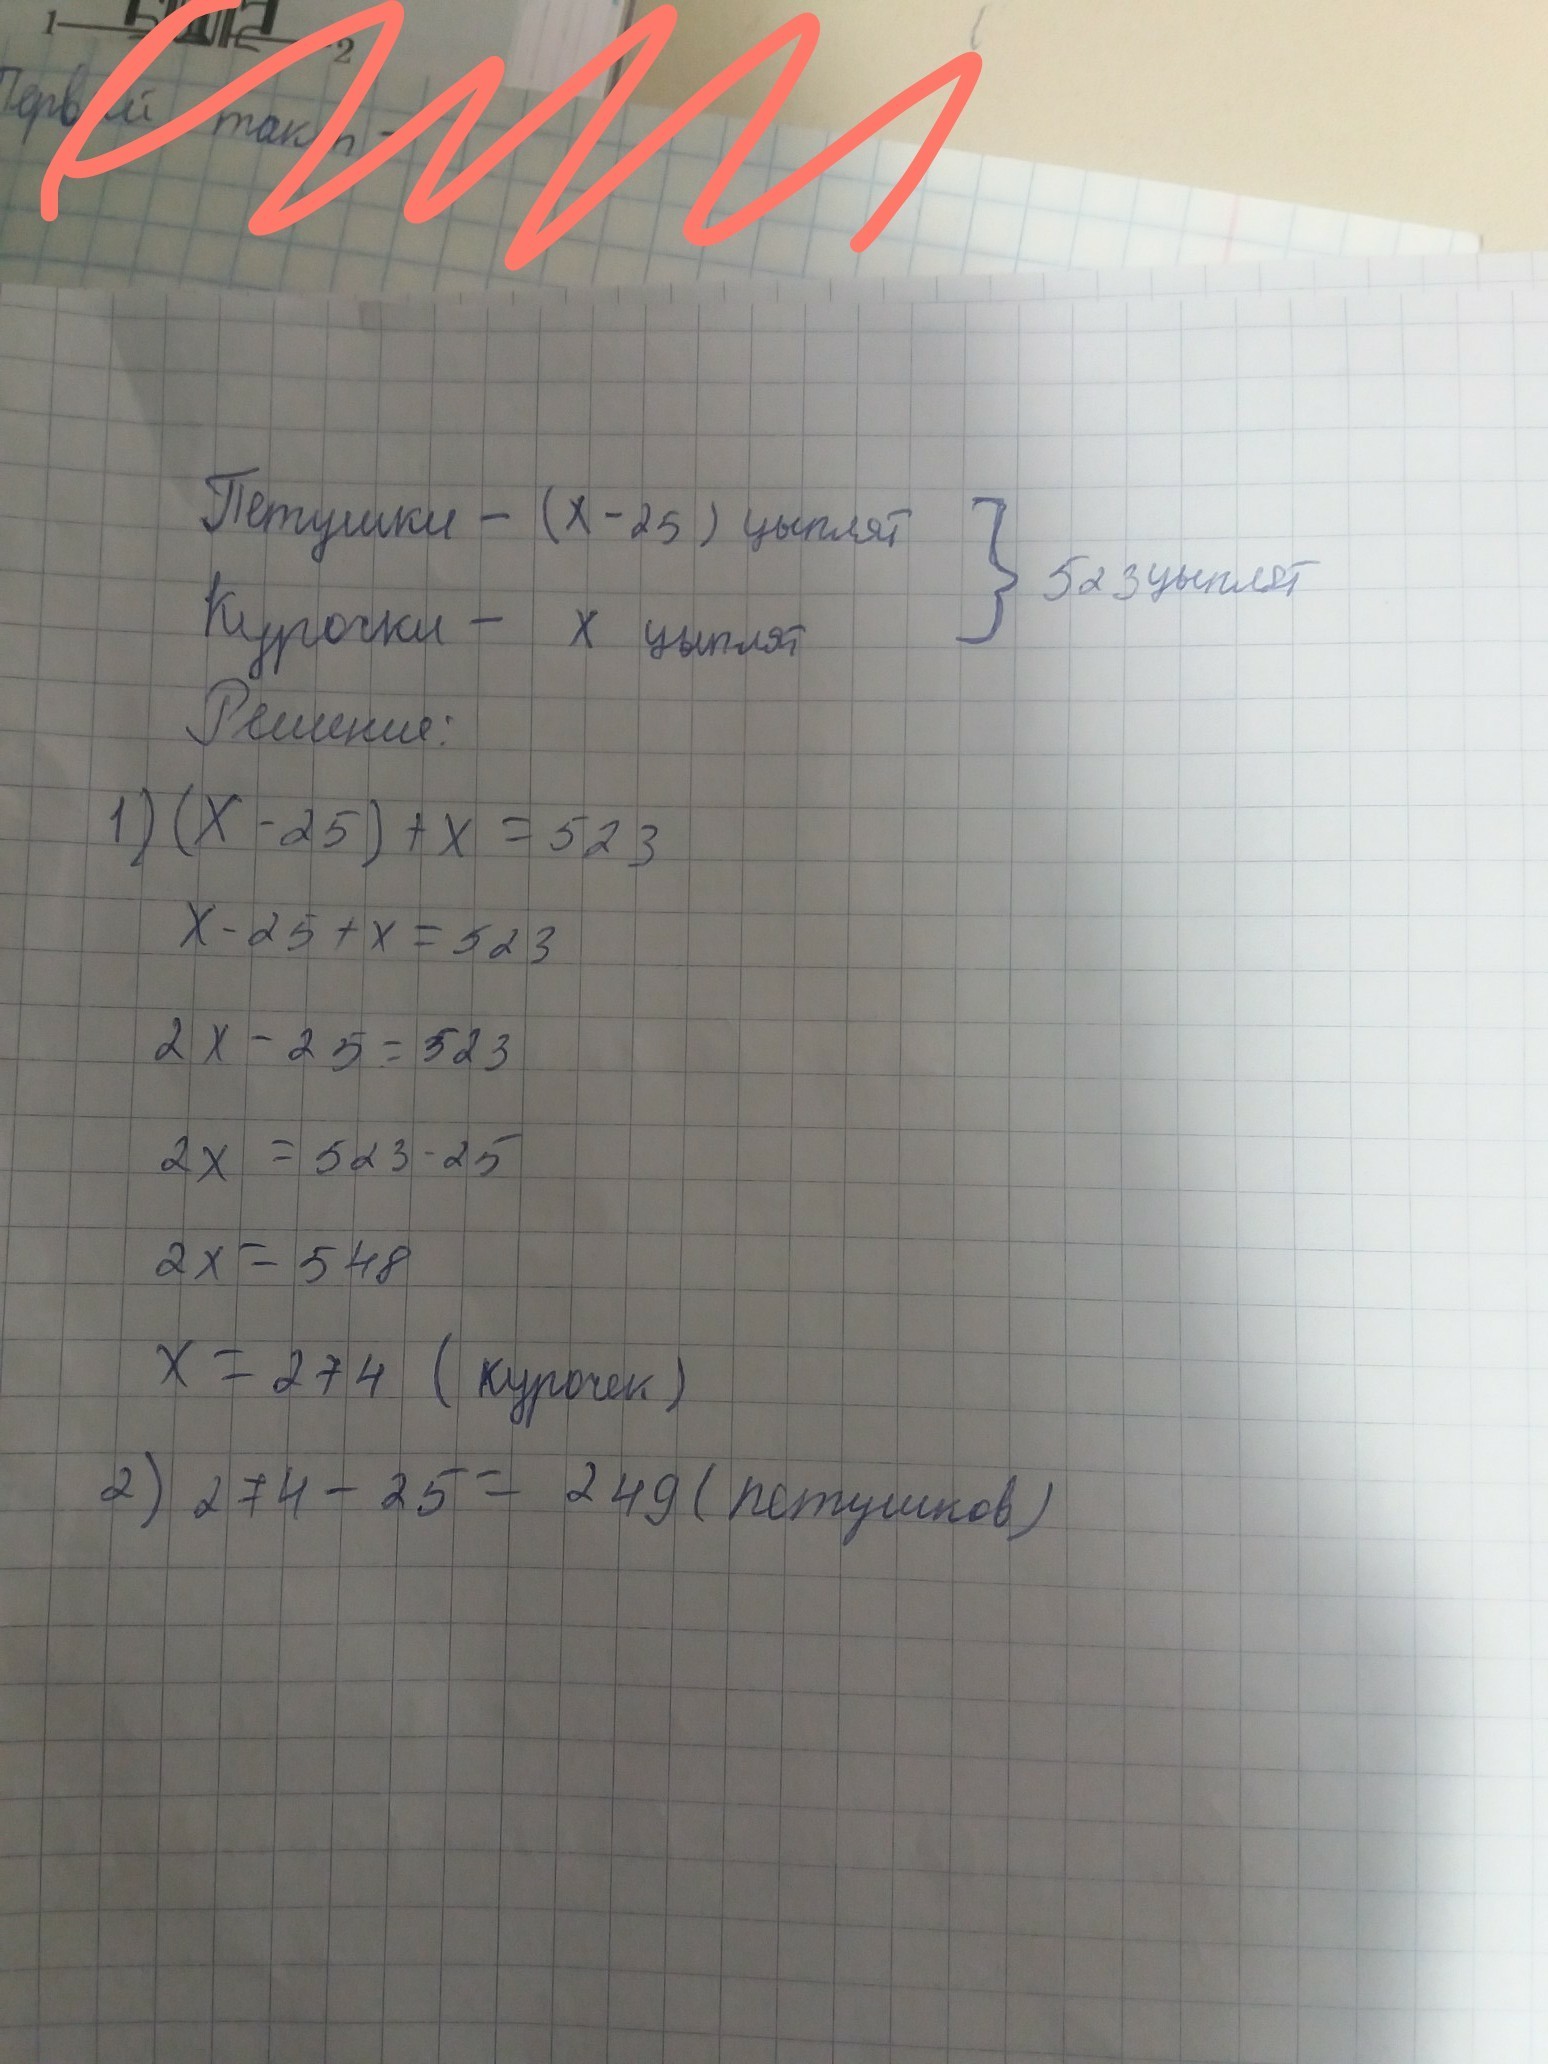 1 2
Первый такт -
Петушки - (х - 25) цыплят
523 цыплят
Курочки - х цыплят
Решение:
1) (х - 25) + х = 523
х - 25 + х = 523
2х - 25 = 523
2х = 523 - 25
2х = 548
х = 274 (курочек)
2) 274 - 25 = 249 (петушков)